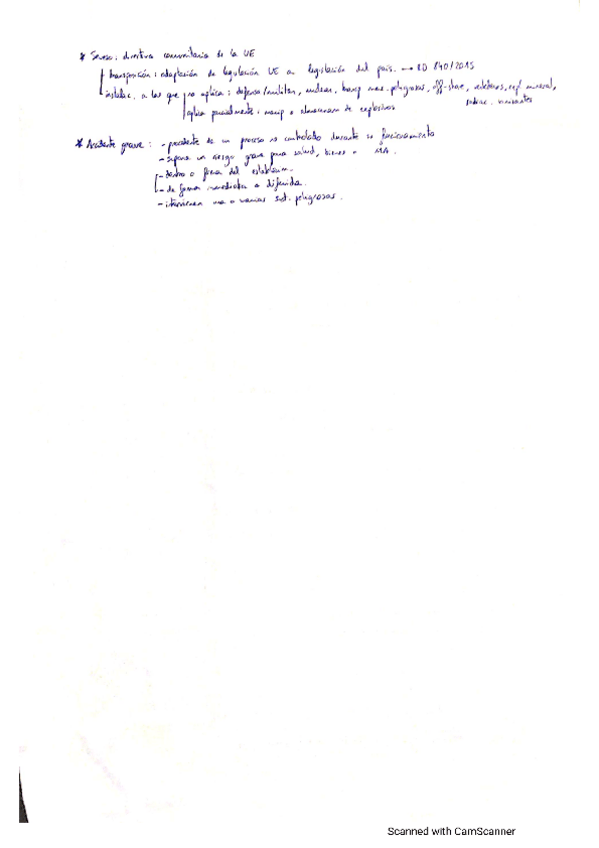 * Seveso: directiva comunitaria de la UE
transposición: adaptación de legislación UE a legislación del país. → RD 840/2015
instalac. a las que no aplica: defensa/militar, nuclear, transp mer. peligrosas, off-shore, vertederos, expl mineral,
aplica parcialmente: manip o almacenam de explosivos
radiac. ionizantes
* Accidente grave: - procedente de un proceso no controlado durante su funcionamiento
- supone un riesgo grave para salud, bienes o MA.
- dentro o fuera del establecim.
- de forma inmediata o diferida.
- intervienen una o varias sust. peligrosas.
Scanned with CamScanner